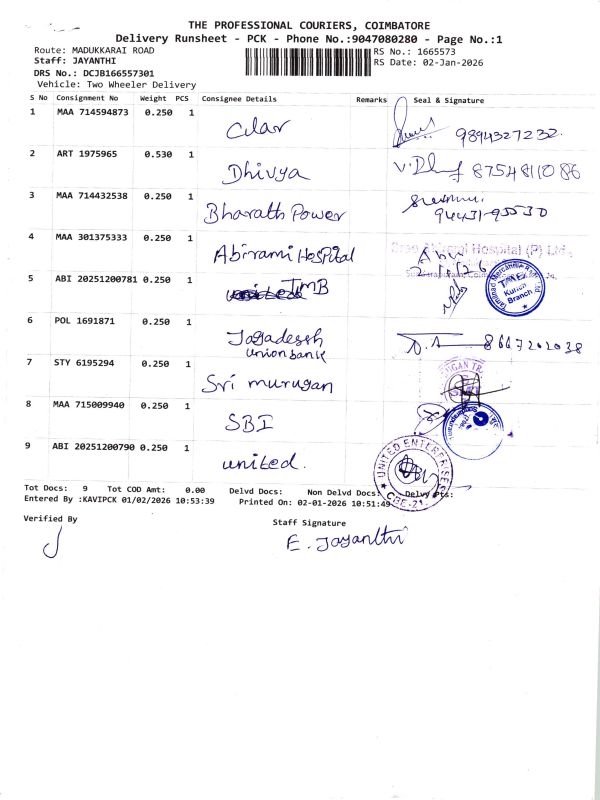 THE PROFESSIONAL COURIERS, COIMBATORE
Delivery Runsheet - PCK - Phone No.:9047080280 - Page No.:1
Route: MADUKKARAI ROAD
RS No.: 1665573
Staff: JAYANTHI
RS Date: 02-Jan-2026
DRS No.: DCJB166557301
Vehicle: Two Wheeler Delivery
S No Consignment No Weight PCS Consignee Details Remarks Seal & Signature
1 MAA 714594873 0.250 1 9894327232.
2 ART 1975965 0.530 1 Dhivya 8754811086
3 MAA 714432538 0.250 1 Bharath Power 94431-95530
4 MAA 301375333 0.250 1 Abirami Hospital Hospital (P) Ltd.,
5 ABI 20251200781 0.250 1 united TMB
Kurichi
Branch
6 POL 1691871 0.250 1 Jagadessh
union bank
7 STY 6195294 0.250 1 Sri murugan
8 MAA 715009940 0.250 1 SBI
9 ABI 20251200790 0.250 1 united.
UNITED ENTERPRISES
CBE-21
Tot Docs: 9 Tot COD Amt: 0.00 Delvd Docs: Non Delvd Docs: Delvy Pts:
Entered By :KAVIPCK 01/02/2026 10:53:39 Printed On: 02-01-2026 10:51:49
Verified By
Staff Signature
E. Jayanthi